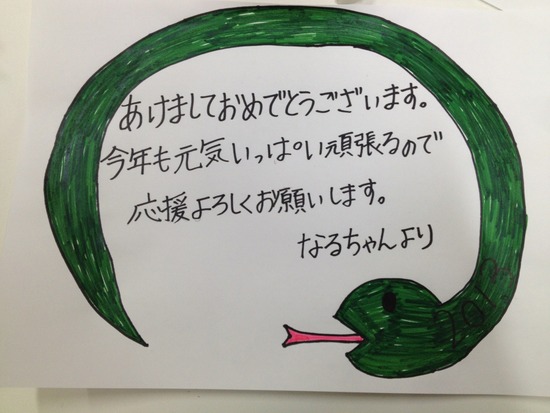 あけましておめでとうございます。
今年も元気いっぱい頑張るので
応援よろしくお願いします。
なるちゃんより